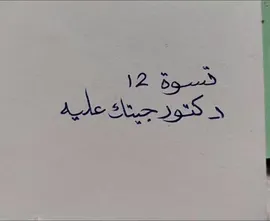 قسوة 12
دكتور جيتك عليه